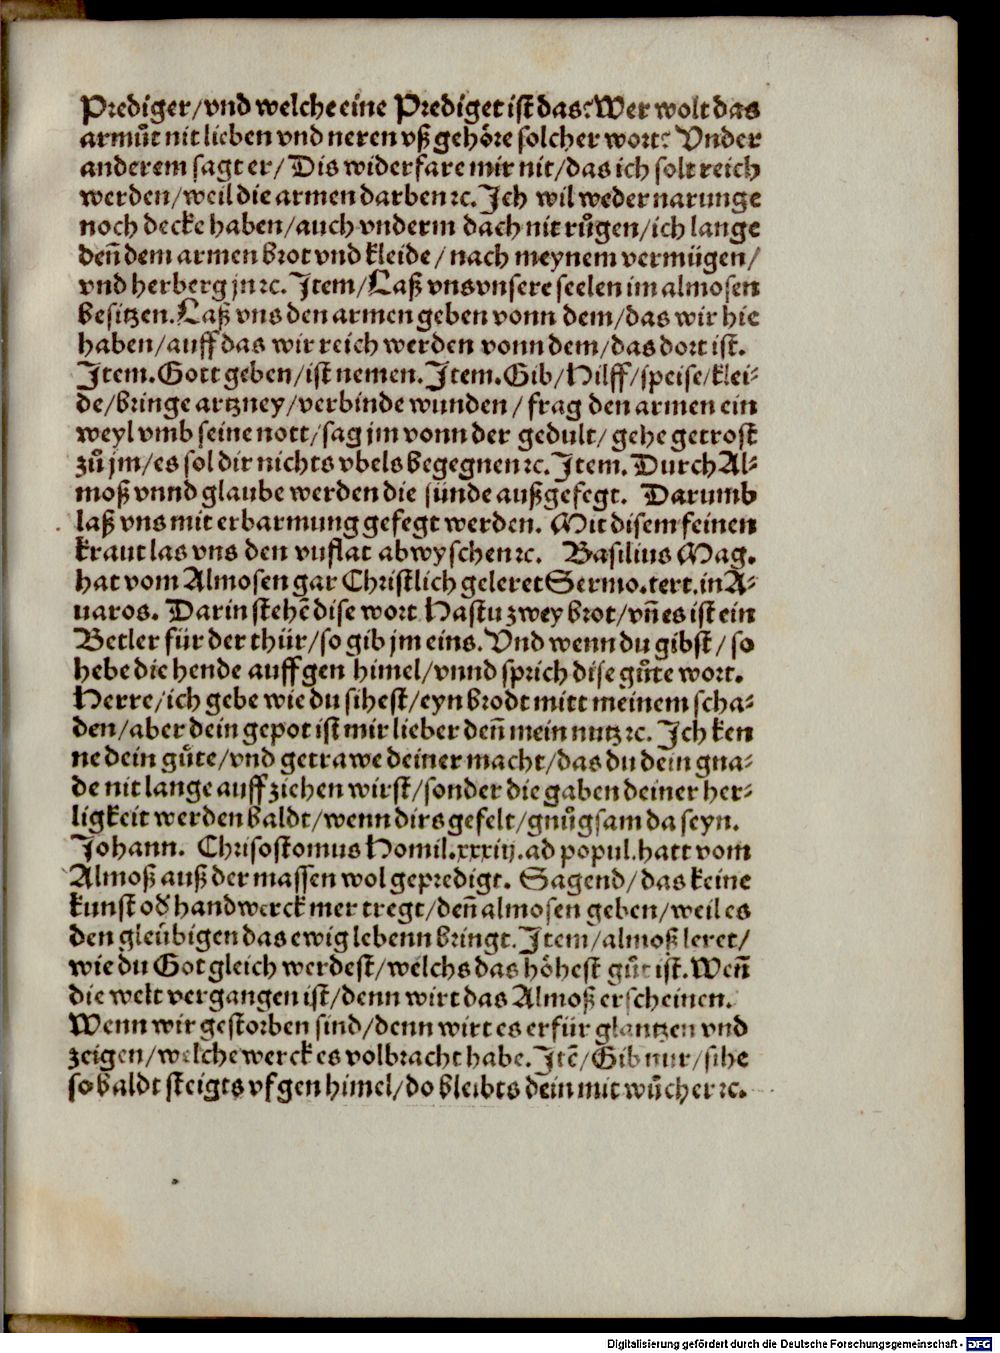 Prediger/vnd welche eine Prediget ist das? Wer wolt das
armůt nit lieben vnd neren vß gehöre solcher wort? Vnder
anderem sagt er/ Dis widerfare mir nit/das ich solt reich
werden/weil die armen darben ꝛc. Ich wil weder narunge
noch decke haben/auch vnderm dach nit růgen/ich lange
deñ dem armen brot vnd kleide/ nach meynem vermügen/
vnd herberg jn ꝛc. Item/Laß vns vnsere seelen im almosen
besitzen. Laß vns den armen geben vonn dem/das wir hie
haben/auff das wir reich werden vonn dem/das dort ist.
Item. Gott geben/ist nemen. Item. Gib/Hilff/speise/klei⸗
de/bringe artzney/verbinde wunden/ frag den armen ein
weyl vmb seine nott/sag jm vonn der gedult/ gehe getrost
zů jm/es sol dir nichts vbels begegnen ꝛc. Item. Durch Al⸗
moß vnnd glaube werden die sünde außgefegt. Darumb
laß vns mit erbarmung gefegt werden. Mit disem feinen
kraut las vns den vnflat abwyschen ꝛc. Basilius Mag.
hat vom Almosen gar Christlich geleret Sermo. tert. in A⸗
uaros. Darin stehẽ dise wort Hastu zwey brot/vñ es ist ein
Betler für der thür/so gib jm eins. Vnd wenn du gibst/ so
hebe die hende auff gen himel/vnnd sprich dise gůte wort.
Herre/ich gebe wie du sihest/eyn brodt mitt meinem scha⸗
den/aber dein gepot ist mir lieber deñ mein nutz ꝛc. Ich ken
ne dein gůte/vnd getrawe deiner macht/das du dein gna⸗
de nit lange auff ziehen wirst/sonder die gaben deiner her⸗
ligkeit werden baldt/wenn dirs gefelt/gnůgsam da seyn.
Johann. Chrisostomus Homil. xxxiij. ad popul. hatt vom
Almoß auß der massen wol gepredigt. Sagend/das keine
kunst oď handwerck mer tregt/deñ almosen geben/weil es
den gleübigen das ewig lebenn bringt. Item/almoß leret/
wie du Got gleich werdest/welchs das höhest gůt ist. Weñ
die welt vergangen ist/denn wirt das Almoß erscheinen.
Wenn wir gestorben sind/denn wirt es erfür glantzen vnd
zeigen/welche werck es volbracht habe. Itẽ/Gib nur/sihe
so baldt steigts vf gen himel/do bleibts dein mit wůcher ꝛc.
Digitalisierung gefördert durch die Deutsche Forschungsgemeinschaft - DFG